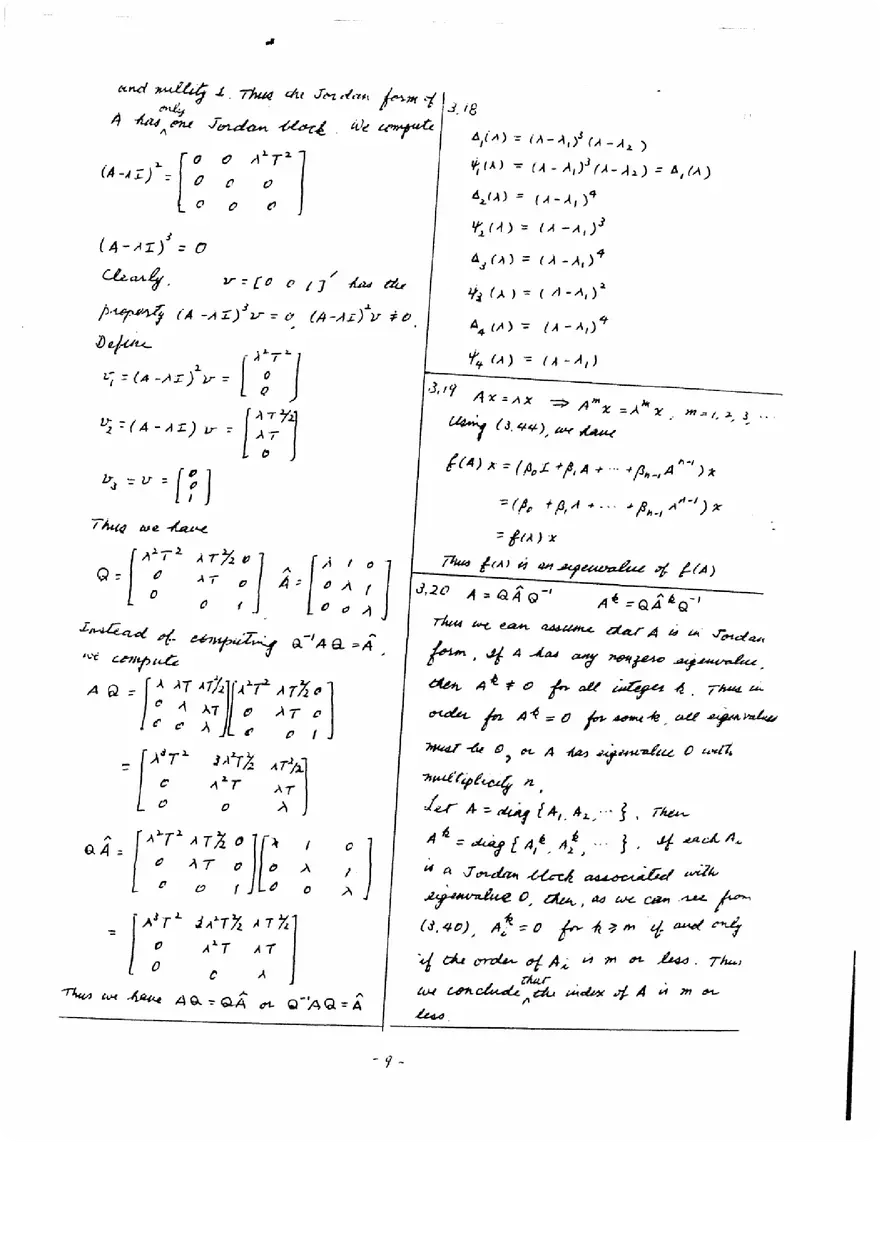 and nullity 1. Thus the Jordan form of
A has only one Jordan block. We compute
(A-λI)² = [0 0 λ²T²; 0 0 0; 0 0 0]
(A-λI)³ = 0
Clearly, v = [0 0 1]′ has the
property (A-λI)³v = 0, (A-λI)²v ≠ 0.
Define
v₁ = (A-λI)²v = [λ²T²; 0; 0]
v₂ = (A-λI)v = [λT²/2; λT; 0]
v₃ = v = [0; 0; 1]
Thus we have
Q = [λ²T² λT²/2 0; 0 λT 0; 0 0 1] Â = [λ 1 0; 0 λ 1; 0 0 λ]
Instead of computing Q⁻¹AQ = Â,
we compute
AQ = [λ λT λT²/2; 0 λ λT; 0 0 λ][λ²T² λT²/2 0; 0 λT 0; 0 0 1]
= [λ³T² 3λ²T²/2 λT²/2; 0 λ²T λT; 0 0 λ]
QÂ = [λ²T² λT²/2 0; 0 λT 0; 0 0 1][λ 1 0; 0 λ 1; 0 0 λ]
= [λ³T² 3λ²T²/2 λT²/2; 0 λ²T λT; 0 0 λ]
Thus we have AQ = QÂ or Q⁻¹AQ = Â
3.18
Δ₁(λ) = (λ-λ₁)³(λ-λ₂)
ψ₁(λ) = (λ-λ₁)³(λ-λ₂) = Δ₁(λ)
Δ₂(λ) = (λ-λ₁)⁴
ψ₂(λ) = (λ-λ₁)³
Δ₃(λ) = (λ-λ₁)⁴
ψ₃(λ) = (λ-λ₁)²
Δ₄(λ) = (λ-λ₁)⁴
ψ₄(λ) = (λ-λ₁)
3.19 Ax = λx ⇒ Aᵐx = λᵐx, m = 1, 2, 3, ...
Using (3.44), we have
f(A)x = (β₀I + β₁A + ... + βₙ₋₁Aⁿ⁻¹)x
= (β₀ + β₁λ + ... + βₙ₋₁λⁿ⁻¹)x
= f(λ)x
Thus f(λ) is an eigenvalue of f(A)
3.20 A = QÂQ⁻¹ Aᵏ = QÂᵏQ⁻¹
Thus we can assume that A is in Jordan
form. If A has any nonzero eigenvalue,
then Aᵏ ≠ 0 for all integer k. Thus in
order for Aᵏ = 0 for some k, all eigenvalues
must be 0, or A has eigenvalue 0 with
multiplicity n.
Let A = diag {A₁, A₂, ...}. Then
Aᵏ = diag {A₁ᵏ, A₂ᵏ, ...}. If each Aᵢ
is a Jordan block associated with
eigenvalue 0, then, as we can see from
(3.40), Aᵢᵏ = 0 for k ≥ m if and only
if the order of Aᵢ is m or less. Thus
we conclude that the index of A is m or
less.
- 9 -